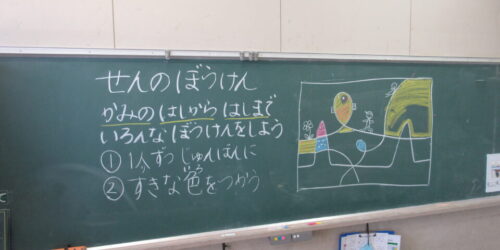 せんのぼうけん
かみのはしから はしまで
いろんなぼうけんをしよう
① 1人ずつじゅんばんに
② すきな色をつかう
いろ